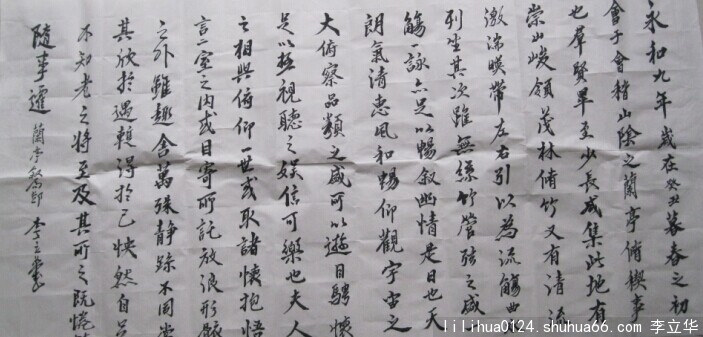 永和九年歲在癸丑暮春之初
會于會稽山陰之蘭亭脩禊事
也羣賢畢至少長咸集此地有
崇山峻領茂林脩竹又有清流
激湍暎帶左右引以為流觴曲
列坐其次雖無絲竹管弦之盛
觴一詠亦足以暢叙幽情是日也天
朗氣清惠風和暢仰觀宇宙之
大俯察品類之盛可以遊目騁懷
足以極視聽之娛信可樂也夫人
之相與俯仰一世或取諸懷抱悟
言一室之內或目寄所託放浪形骸
之外雖趣舍萬殊靜躁不同當
其欣於遇蹔得於己怏然自足
不知老之將至及其所之既惓
隨事遷 蘭亭 李立華
lilihua0124.shuhua66.com 李立华